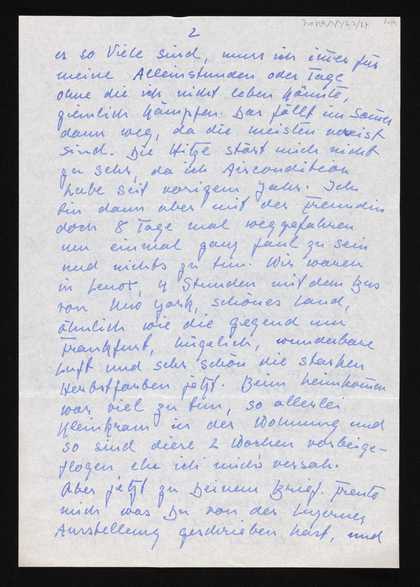 2
es so Viele sind, muss ich immer für
meine Alleinstunden oder Tage
ohne die ich nicht leben könnte,
ziemlich kämpfen. Das fällt im Sommer
dann weg, da die meisten verreist
sind. Die Hitze stört mich nicht
zu sehr, da ich Aircondition
habe seit vorigem Jahr. Ich
bin dann aber mit der Freundin
doch 8 Tage mal weggefahren
um einmal ganz faul zu sein
und nichts zu tun. Wir waren
in Lenox, 4 Stunden mit dem Bus
von New York, schönes Land,
ähnlich wie die Gegend um
Frankfurt, hügelich, wunderbare
Luft und sehr schön die starken
Herbstfarben jetzt. Beim heimkommen
war viel zu tun, so allerlei
Kleinkram in der Wohnung und
so sind diese 2 Wochen vorbeige-
flogen ehe ich mich's versah.
Aber jetzt zu Deinem Brief. Freute
mich was Du von der Luzerner
Ausstellung geschrieben hast, und